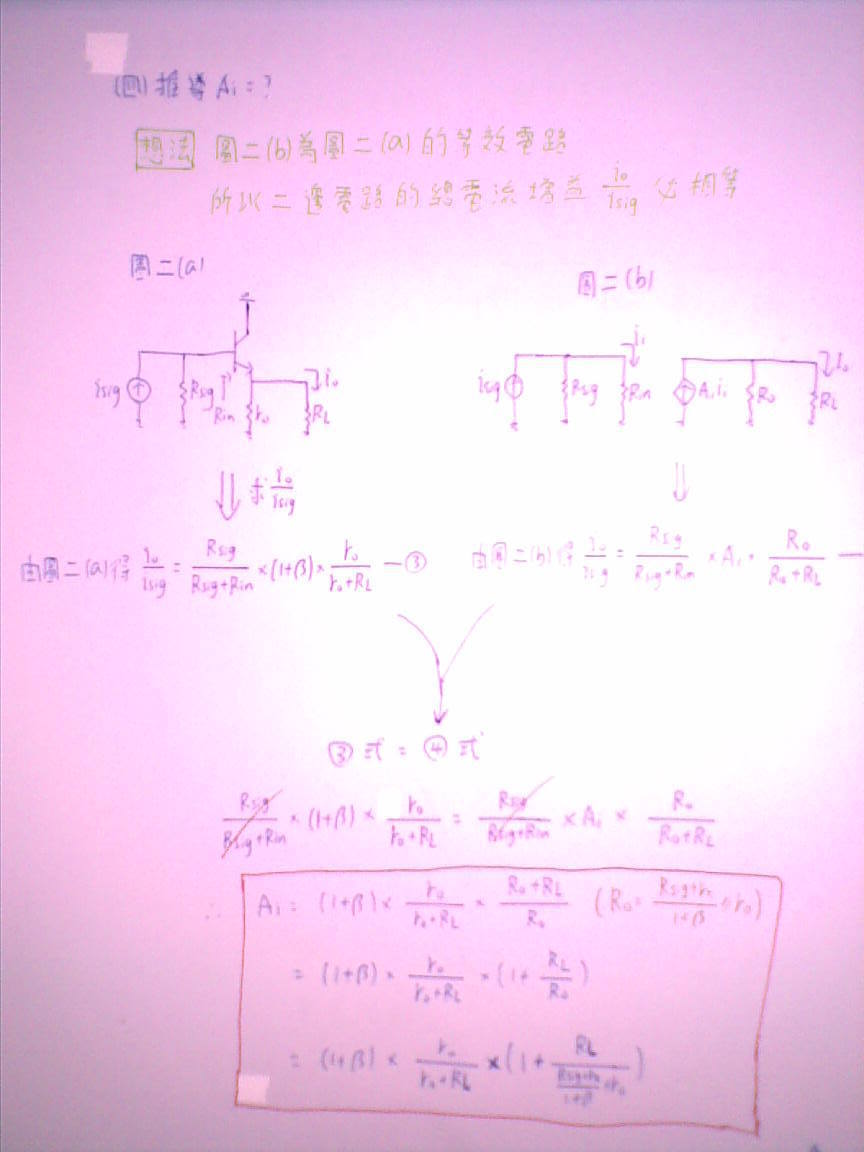 (四) 推導 Ai = ?
想法 圖二(b)為圖二(a)的等效電路
所以二邊電路的總電流增益 io/isig 必相等
圖二(a)
圖二(b)
isig Rsig Rin ro RL io
isig Rsig ii Rin Aiii Ro RL io
求 io/isig
由圖二(a)得 io/isig = Rsig/(Rsig+Rin) × (1+β) × ro/(ro+RL) — ③
由圖二(b)得 io/isig = Rsig/(Rsig+Rin) × Ai × Ro/(Ro+RL) —
③ 式 = ④ 式
Rsig/(Rsig+Rin) × (1+β) × ro/(ro+RL) = Rsig/(Rsig+Rin) × Ai × Ro/(Ro+RL)
∴ Ai = (1+β) × ro/(ro+RL) × (Ro+RL)/Ro (Ro = (Rsig+rπ)/(1+β) // ro)
= (1+β) × ro/(ro+RL) × (1 + RL/Ro)
= (1+β) × ro/(ro+RL) × (1 + RL/((Rsig+rπ)/(1+β) // ro))